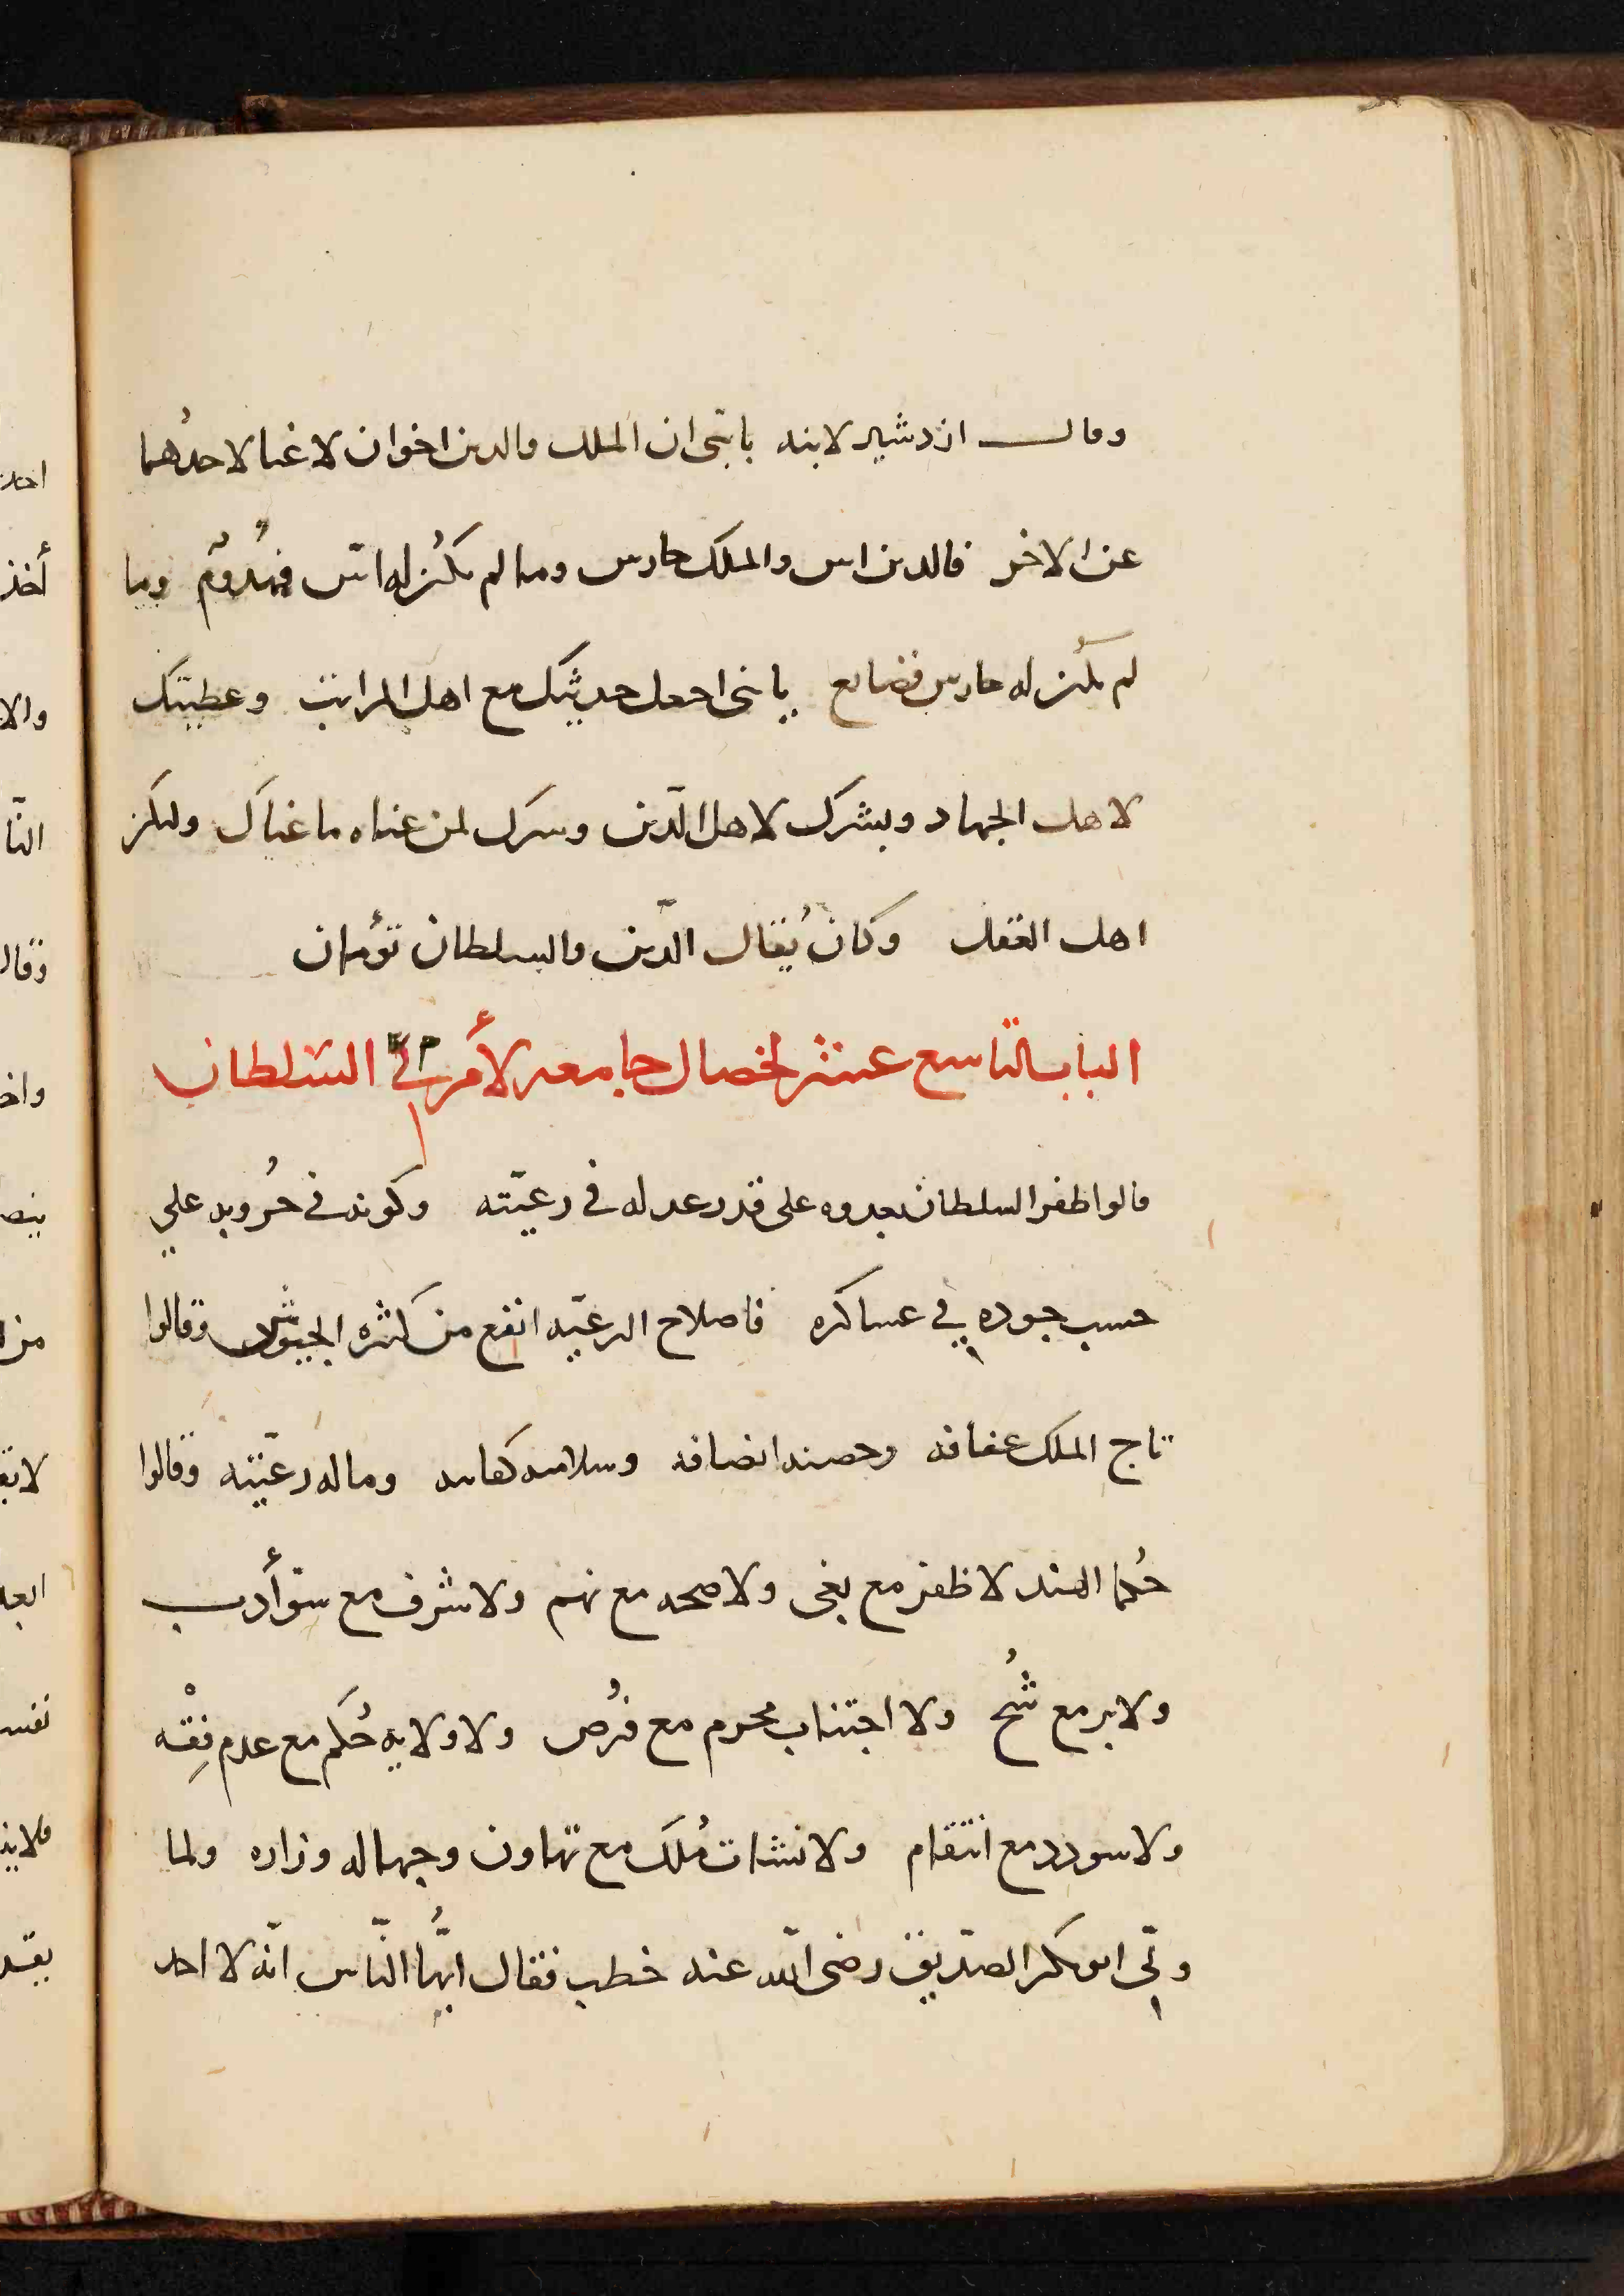 وقال ازدشير لابنه يابنى ان الملك والدين اخوان لا غنا لاحدهما
عن الاخر فالدين اس والملك حارس وما لم يكن له اس فمهدوم وما
لم يكن له حارس فضايع يا بنى اجعل حديثك مع اهل المراتب وعطيتك
لاهل الجهاد وبشرك لاهل الدّين وسرك لمن عناه ما عناك وليكن
اهل العقل وكان يُقال الدّين والسلطان تؤمان
الباب التاسع عشر لخصال جامعه لأمر السّلطان
قالوا ظفر السلطان بعدوه على قدر عدله فى رعيّته وكونه فى حُروبه على
حسب جوده في عساكره فاصلاح الرعيّه انفع من كثره الجيوش وقالوا
تاج الملك عفافه وحصنه انصافه وسلامته كفايته وماله رعيّته وقالوا
حُكما الهند لا ظفر مع بغى ولا صحه مع نهم ولا شرف مع سؤ أدب
ولا بر مع شُح ولا اجتناب محرم مع فرُص ولا ولايه حُكم مع عدم فِقْه
ولا سودد مع انتقام ولا نشات مُلك مع تهاون وجهاله وزاره ولما
ولّى ابو بكر الصدّيق رضى الله عنه خطب فقال ايُّها النّاس انّه لا احد